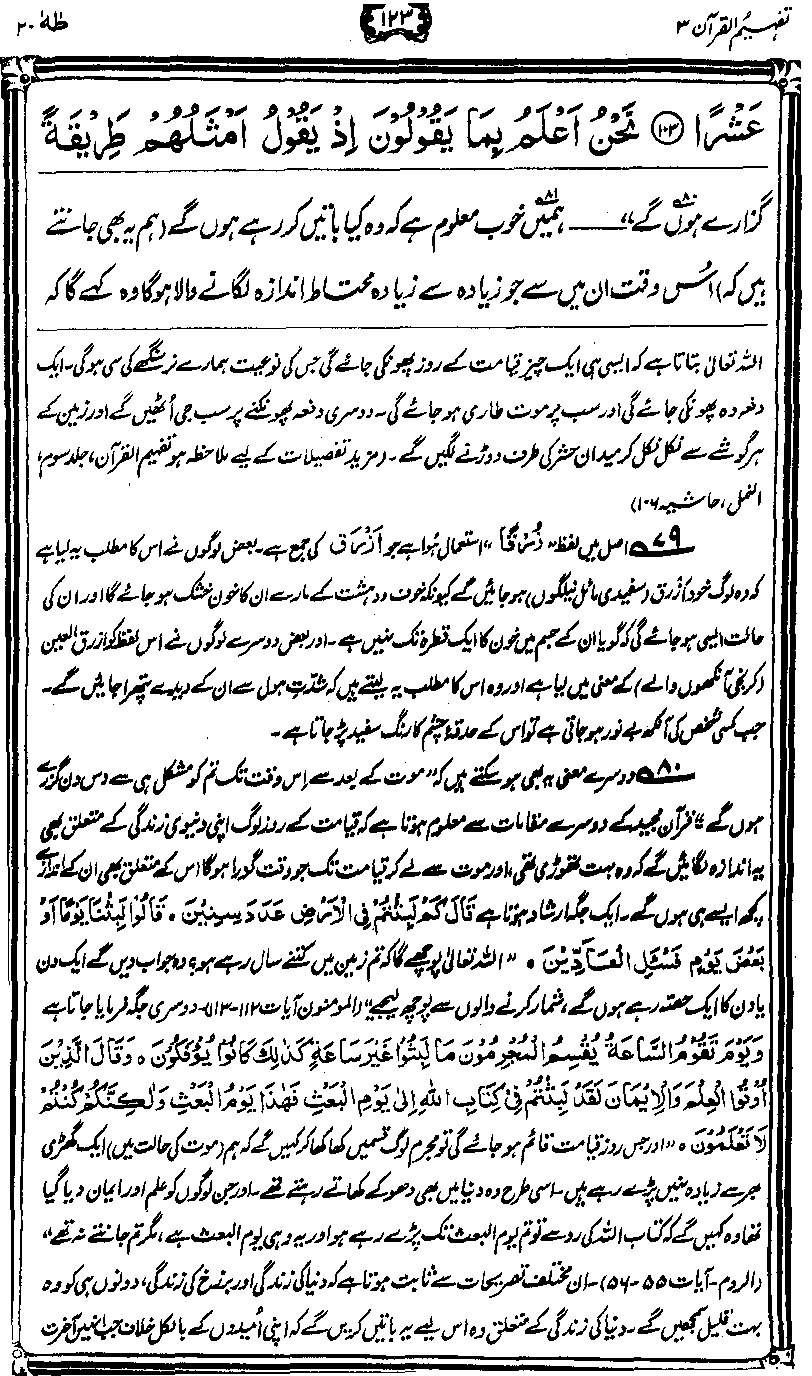 تفہیم القرآن ۳
۱۲۳
طٰہٰ ۲۰
عَشْرًا ۝۱۰۳ نَحْنُ اَعْلَمُ بِمَا يَقُوْلُوْنَ اِذْ يَقُوْلُ اَمْثَلُهُمْ طَرِيْقَةً
گزارے ہوں گے"۸۰ ــــــ ہمیں۸۱ خوب معلوم ہے کہ وہ کیا باتیں کر رہے ہوں گے (ہم یہ بھی جانتے
ہیں کہ) اُس وقت ان میں سے جو زیادہ سے زیادہ محتاط اندازہ لگانے والا ہوگا وہ کہے گا کہ
اللہ تعالیٰ بتاتا ہے کہ ایسی ہی ایک چیز قیامت کے روز پھونکی جائے گی جس کی نوعیت ہمارے نرسنگھے کی سی ہوگی۔ ایک
دفعہ وہ پھونکی جائے گی اور سب پر موت طاری ہو جائے گی۔ دوسری دفعہ پھونکنے پر سب جی اُٹھیں گے اور زمین کے
ہر گوشے سے نکل نکل کر میدان حشر کی طرف دوڑنے لگیں گے۔ (مزید تفصیلات کے لیے ملاحظہ ہو تفہیم القرآن، جلد سوم،
النمل، حاشیہ ۱۰۶)
۷۹ اصل میں لفظ "زُرْقًا" استعمال ہُوا ہے جو اَزْرَق کی جمع ہے۔ بعض لوگوں نے اس کا مطلب یہ لیا ہے
کہ وہ لوگ خود اَزْرَق (سفیدی مائل نیلگوں) ہو جائیں گے کیونکہ خوف و دہشت کے مارے ان کا خون خشک ہو جائے گا اور ان کی
حالت ایسی ہو جائے گی کہ گویا ان کے جسم میں خون کا ایک قطرہ تک نہیں ہے۔ اور بعض دوسرے لوگوں نے اس لفظ کو ازرق العین
(کرنجی آنکھوں والے) کے معنی میں لیا ہے اور وہ اس کا مطلب یہ لیتے ہیں کہ شدّتِ ہول سے ان کے دیدے پتھرا جائیں گے۔
جب کسی شخص کی آنکھ بے نور ہو جاتی ہے تو اس کے حدقۂ چشم کا رنگ سفید پڑ جاتا ہے۔
۸۰ دوسرے معنی یہ بھی ہو سکتے ہیں کہ "موت کے بعد سے اِس وقت تک تم کو مشکل ہی سے دس دن گزرے
ہوں گے"۔ قرآن مجید کے دوسرے مقامات سے معلوم ہوتا ہے کہ قیامت کے روز لوگ اپنی دنیوی زندگی کے متعلق بھی
یہ اندازہ لگائیں گے کہ وہ بہت تھوڑی تھی، اور موت سے لے کر قیامت تک جو وقت گزرا ہوگا اس کے متعلق بھی ان کے اندازے
کچھ ایسے ہی ہوں گے۔ ایک جگہ ارشاد ہوتا ہے قَالَ كَمْ لَبِثْتُمْ فِي الْاَرْضِ عَدَدَ سِنِيْنَ ۝ قَالُوْا لَبِثْنَا يَوْمًا اَوْ
بَعْضَ يَوْمٍ فَسْـَٔلِ الْعَآدِّيْنَ ۝ "اللہ تعالیٰ پوچھے گا کہ تم زمین میں کتنے سال رہے ہو؟ وہ جواب دیں گے ایک دن
یا دن کا ایک حصّہ رہے ہوں گے، شمار کرنے والوں سے پوچھ لیجیے" (المومنون آیات ۱۱۲-۱۱۳)۔ دوسری جگہ فرمایا جاتا ہے
وَيَوْمَ تَقُوْمُ السَّاعَةُ يُقْسِمُ الْمُجْرِمُوْنَ مَا لَبِثُوْا غَيْرَ سَاعَةٍ كَذٰلِكَ كَانُوْا يُؤْفَكُوْنَ ۝ وَقَالَ الَّذِيْنَ
اُوْتُوا الْعِلْمَ وَالْاِيْمَانَ لَقَدْ لَبِثْتُمْ فِيْ كِتَابِ اللّٰهِ اِلٰى يَوْمِ الْبَعْثِ فَهٰذَا يَوْمُ الْبَعْثِ وَلٰكِنَّكُمْ كُنْتُمْ
لَا تَعْلَمُوْنَ ۝ "اور جس روز قیامت قائم ہو جائے گی تو مجرم لوگ قسمیں کھا کھا کر کہیں گے کہ ہم (موت کی حالت میں) ایک گھڑی
بھر سے زیادہ نہیں پڑے رہے ہیں۔ اسی طرح وہ دنیا میں بھی دھوکے کھاتے رہتے تھے۔ اور جن لوگوں کو علم اور ایمان دیا گیا
تھا وہ کہیں گے کہ کتاب اللہ کی رو سے تو تم یوم البعث تک پڑے رہے ہو اور یہ وہی یوم البعث ہے، مگر تم جانتے نہ تھے"
(الروم۔ آیات ۵۵-۵۶)۔ ان مختلف تصریحات سے ثابت ہوتا ہے کہ دنیا کی زندگی اور برزخ کی زندگی، دونوں ہی کو وہ
بہت قلیل سمجھیں گے۔ دنیا کی زندگی کے متعلق وہ اس لیے یہ باتیں کریں گے کہ اپنی اُمیدوں کے بالکل خلاف جب انہیں آخرت